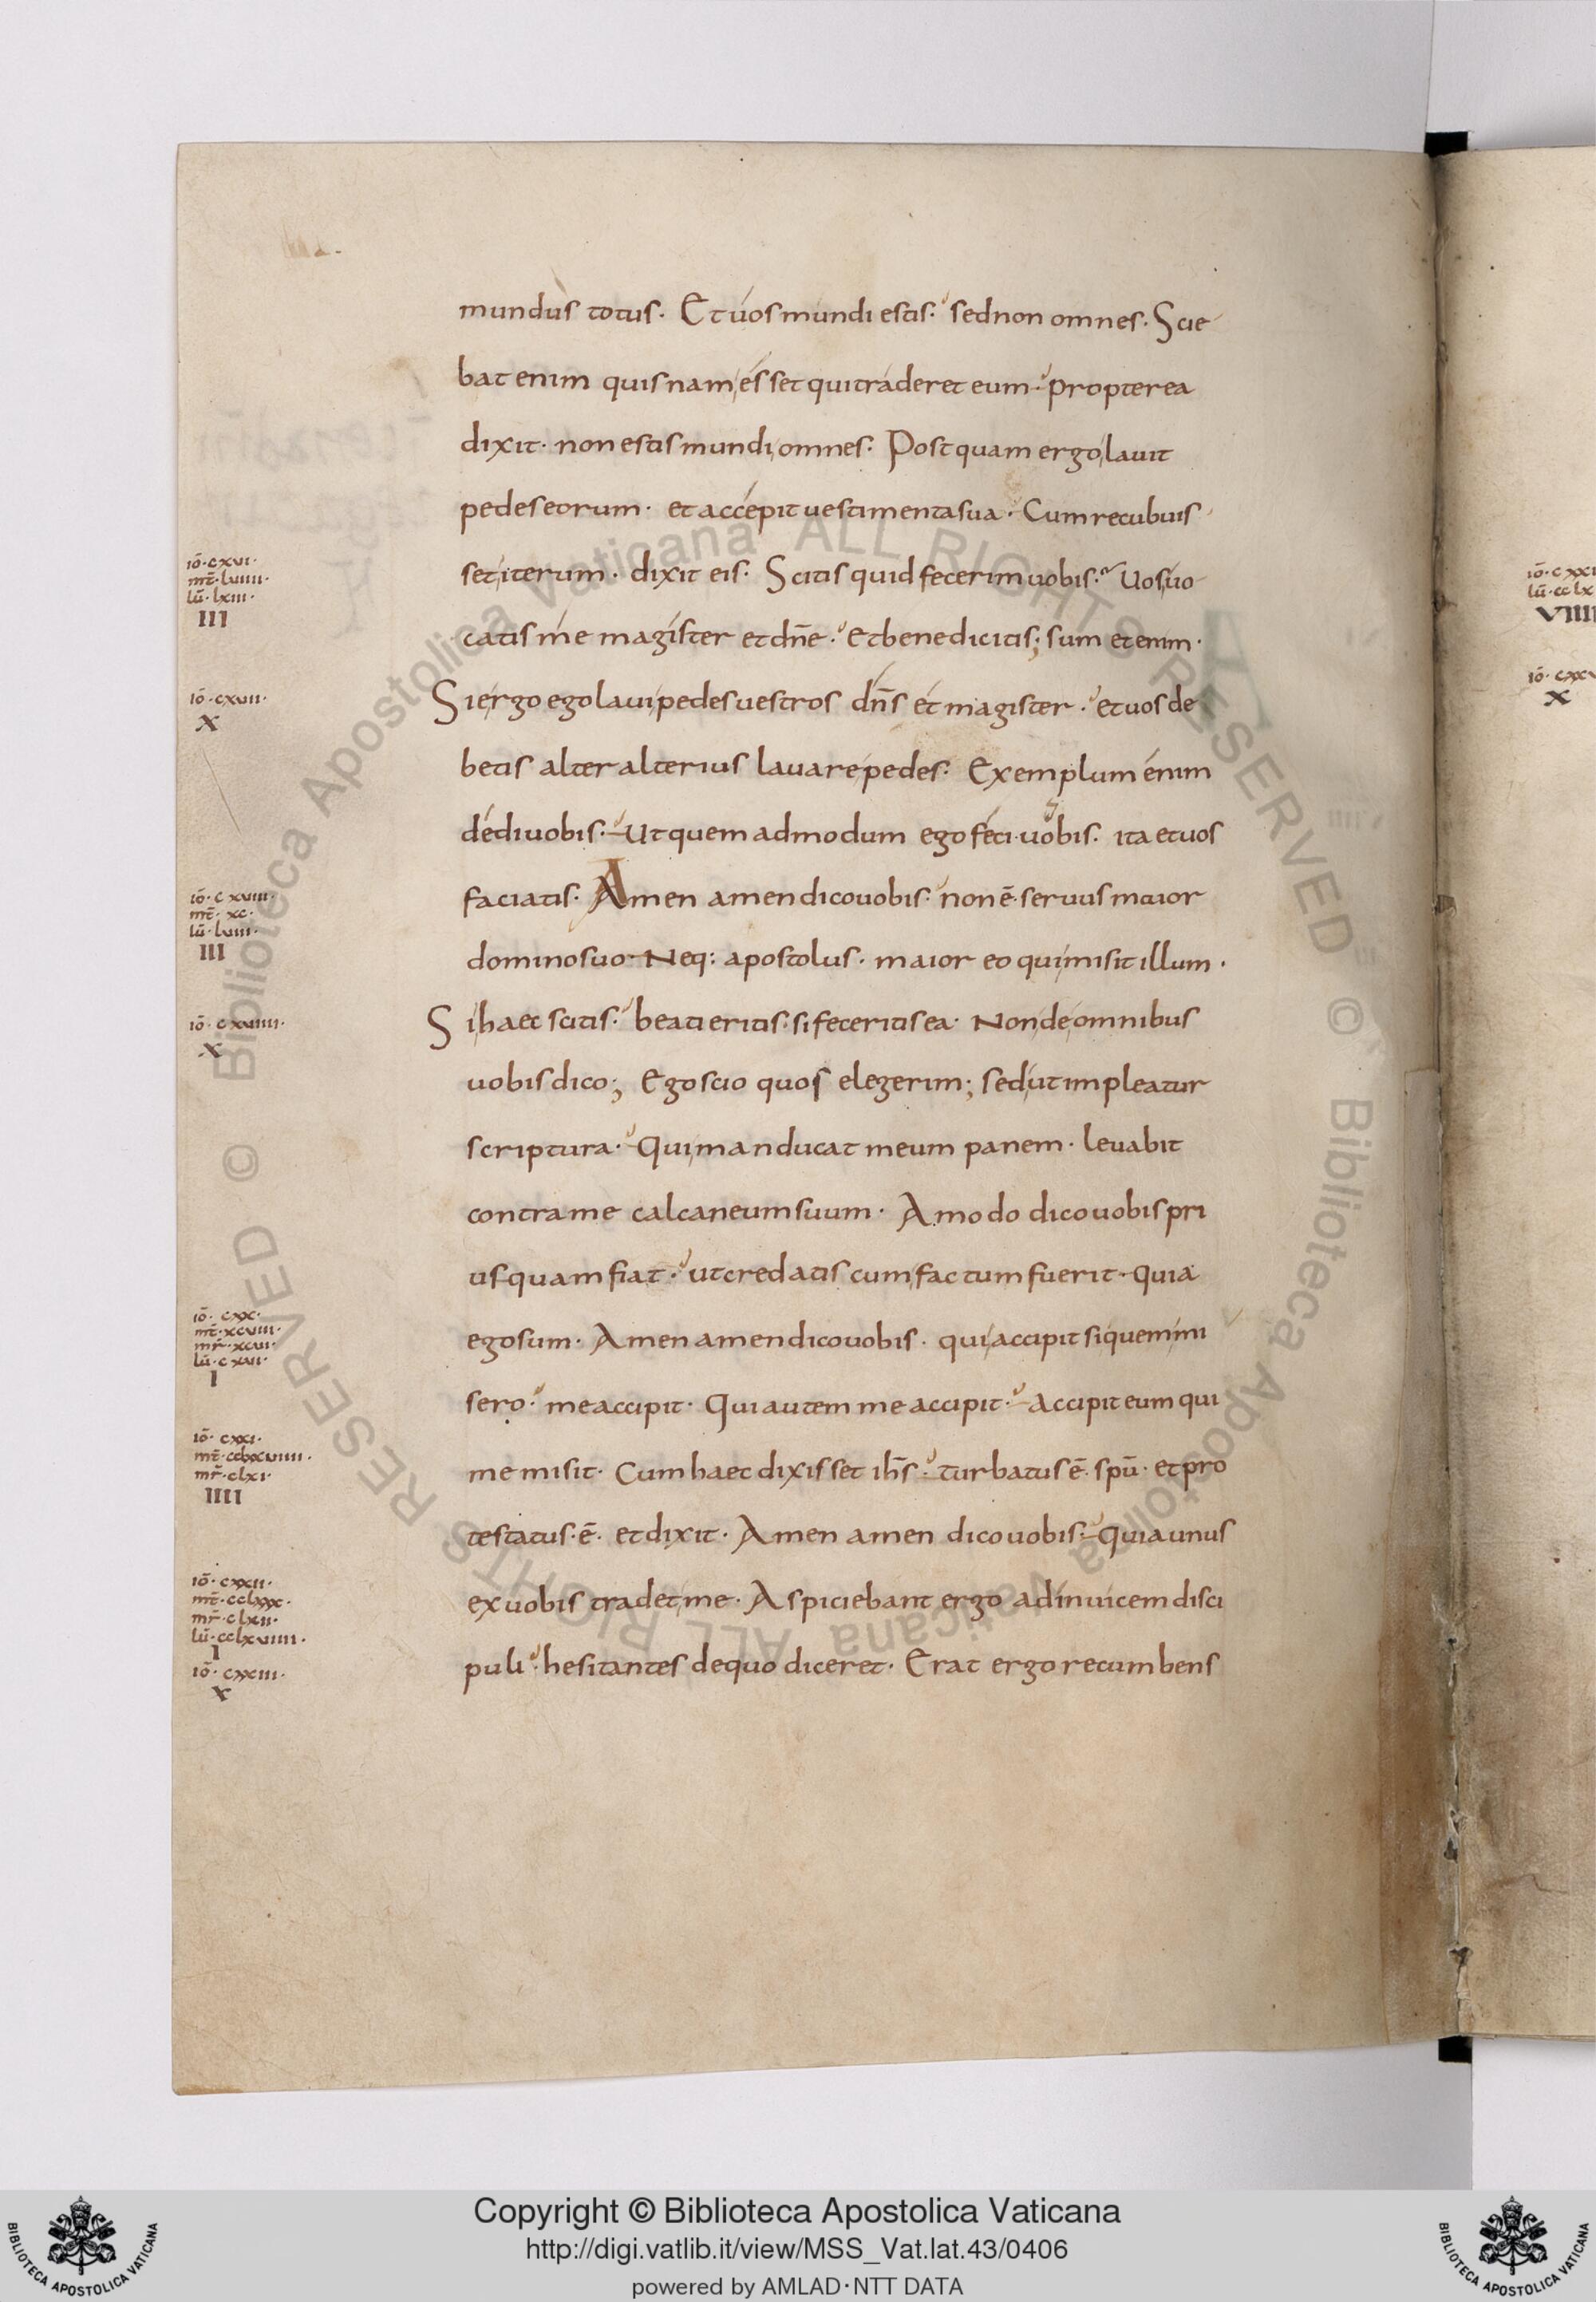 mundus totus. Et uos mundi estis. sed non omnes. Scie
bat enim quisnam esset qui traderet eum. propterea
dixit. non estis mundi omnes. Postquam ergo lauit
pedes eorum. et accepit uestimenta sua. Cum recubuis
set iterum. dixit eis. Scitis quid fecerim uobis. Uos uo
catis me magister et dñe. Et bene dicitis; sum etenim.
Si ergo ego laui pedes uestros dñs et magister. et uos de
betis alter alterius lauare pedes. Exemplum enim
dedi uobis. Ut quem admodum ego feci uobis. ita et uos
faciatis. Amen amen dico uobis. non ē seruus maior
domino suo. Neq: apostolus. maior eo qui misit illum.
Si haec scitis. beati eritis. si feceritis ea. Non de omnibus
uobis dico; Ego scio quos elegerim; sed ut impleatur
scriptura. Qui manducat meum panem. leuabit
contra me calcaneum suum. A modo dico uobis pri
usquam fiat. ut credatis cum factum fuerit. quia
ego sum. Amen amen dico uobis. qui accipit si quem mi
sero. me accipit. Qui autem me accipit. Accipit eum qui
me misit. Cum haec dixisset ihs̄. turbatus ē. spū. et pro
testatus. ē. et dixit. Amen amen dico uobis. Quia unus
ex uobis tradet me. Aspiciebant ergo ad inuicem disci
puli. hesitantes de quo diceret. Erat ergo recumbens
iō. cxvi.
mt̄. lviiii.
lū. lxiii.
III
iō. cxvii.
X
iō. cxviii.
mt̄. xc.
lū. lviii.
III
iō. cxviiii.
X
iō. cxx.
mt̄. xcviii.
mr̄. xcvi.
lū. cxvi.
I
iō. cxxi.
mt̄. cclxxviiii.
mr̄. clxi.
IIII
iō. cxxii.
mt̄. cclxxx.
mr̄. clxii.
lū. cclxviiii.
I
iō. cxxiii.
X
VIIII
X
© Biblioteca Apostolica Vaticana ALL RIGHTS RESERVED © Biblioteca Apostolica Vaticana ALL RIGHTS RESERVED
Copyright © Biblioteca Apostolica Vaticana
http://digi.vatlib.it/view/MSS_Vat.lat.43/0406
powered by AMLAD·NTT DATA
BIBLIOTECA APOSTOLICA VATICANA
BIBLIOTECA APOSTOLICA VATICANA